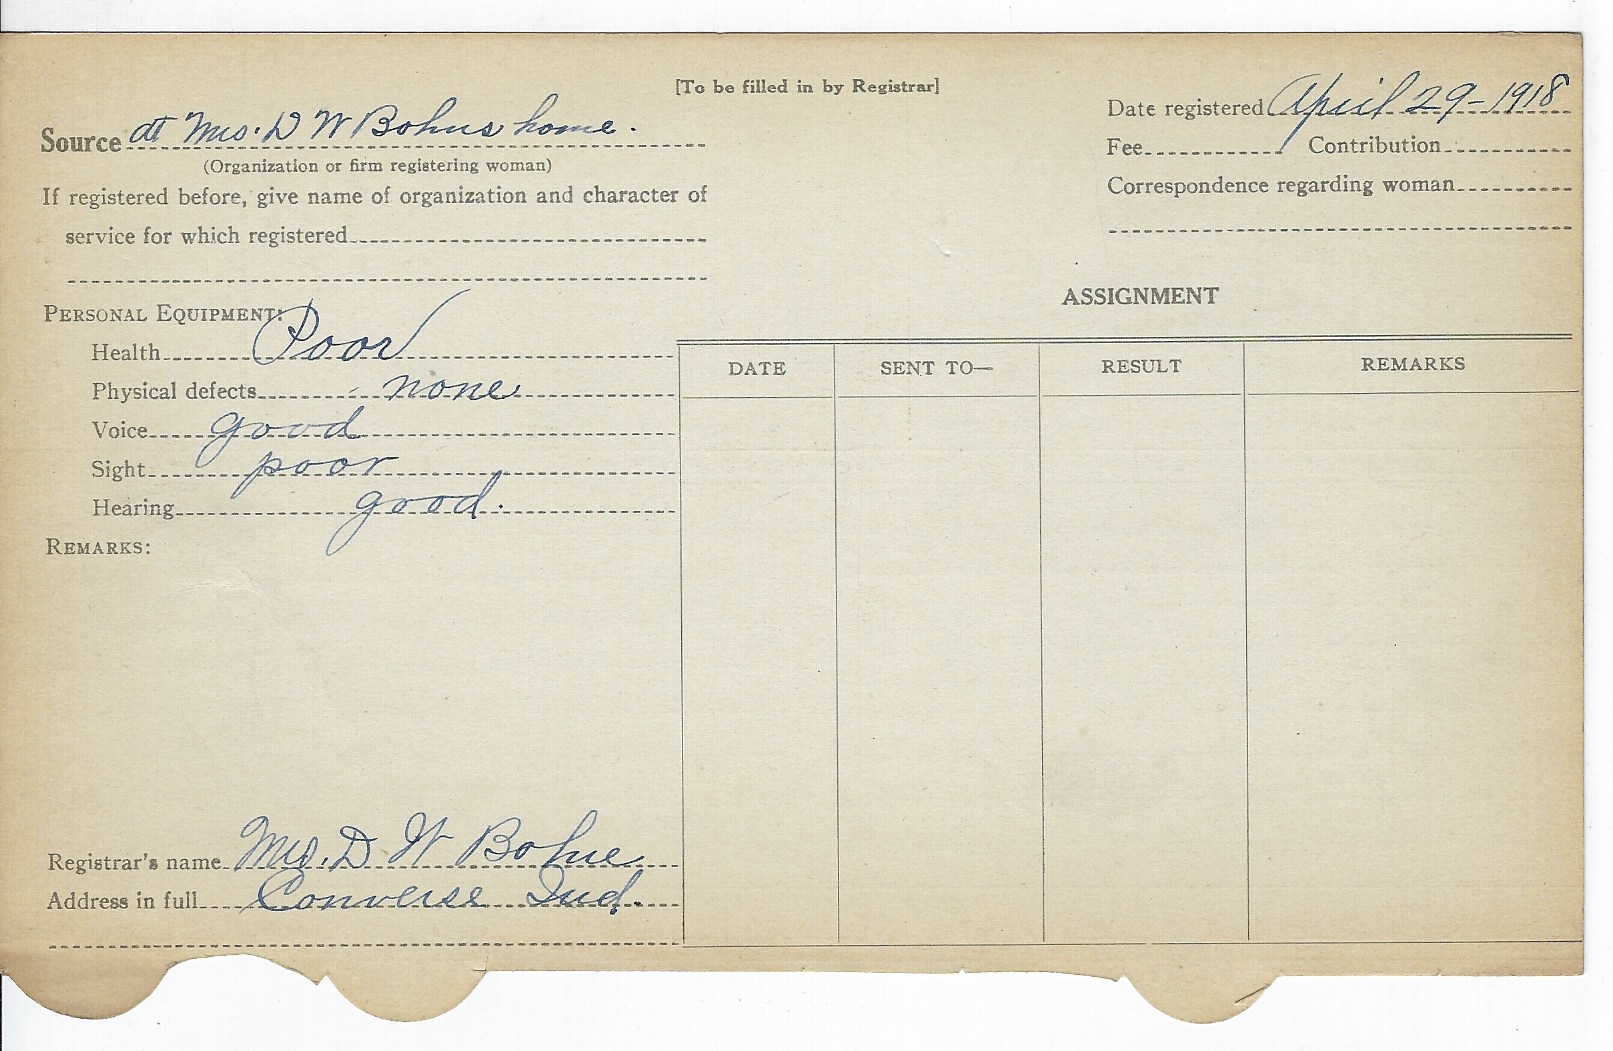 [To be filled in by Registrar]
Source at Mrs. D W Bohns home.
(Organization or firm registering woman)
If registered before, give name of organization and character of
service for which registered
Date registered April 29-1918
Fee Contribution
Correspondence regarding woman
PERSONAL EQUIPMENT:
Health Poor
Physical defects none
Voice good
Sight poor
Hearing good.
REMARKS:
ASSIGNMENT
DATE SENT TO— RESULT REMARKS
Registrar's name Mrs. D W Bohne
Address in full Converse Ind.